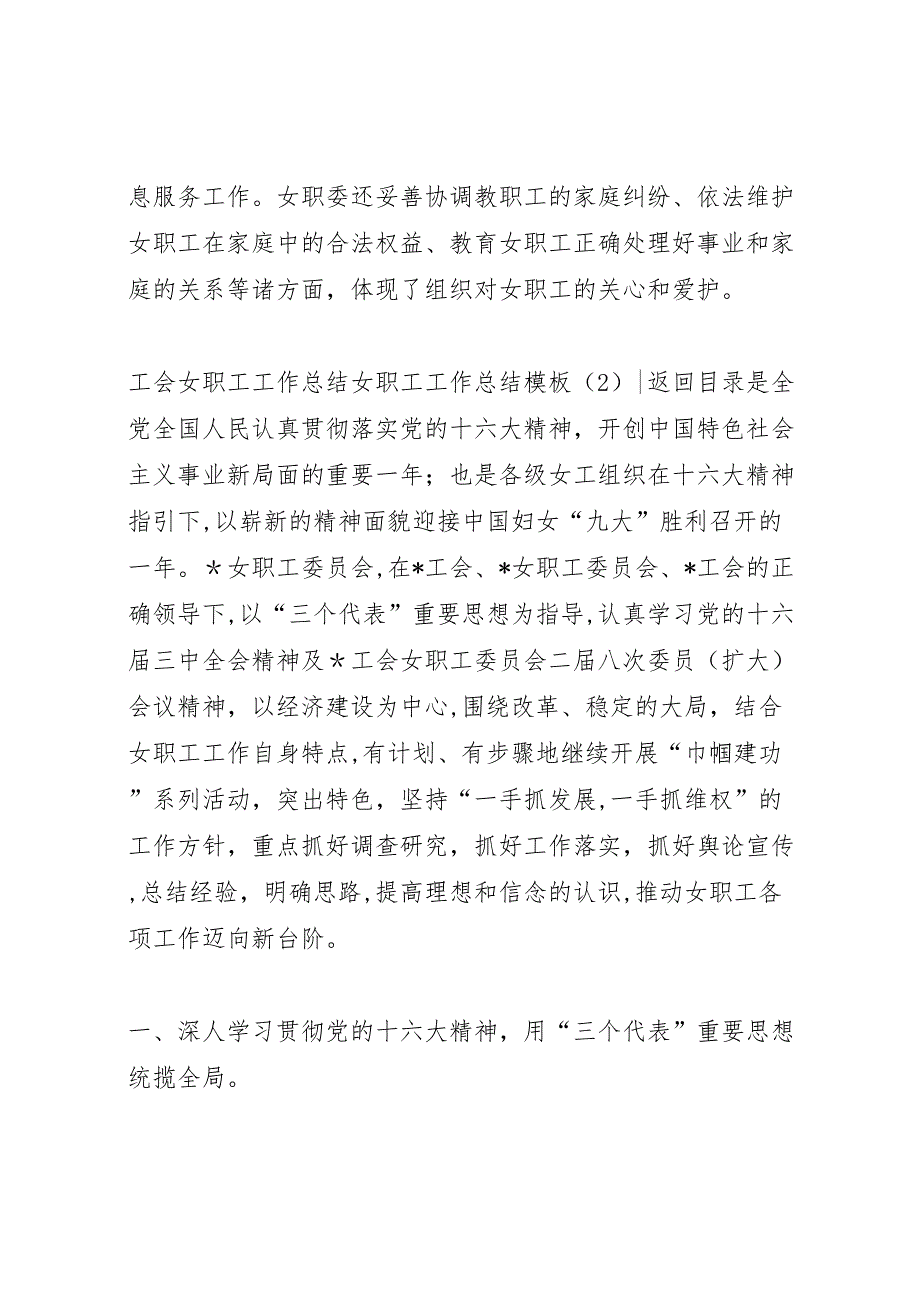 息服务工作。女职委还妥善协调教职工的家庭纠纷、依法维护
女职工在家庭中的合法权益、教育女职工正确处理好事业和家
庭的关系等诸方面，体现了组织对女职工的关心和爱护。
工会女职工工作总结女职工工作总结模板（2）|返回目录是全
党全国人民认真贯彻落实党的十六大精神，开创中国特色社会
主义事业新局面的重要一年；也是各级女工组织在十六大精神
指引下,以崭新的精神面貌迎接中国妇女“九大”胜利召开的
一年。＊女职工委员会,在*工会、*女职工委员会、*工会的正
确领导下,以“三个代表”重要思想为指导,认真学习党的十六
届三中全会精神及＊工会女职工委员会二届八次委员（扩大）
会议精神，以经济建设为中心,围绕改革、稳定的大局，结合
女职工工作自身特点,有计划、有步骤地继续开展“巾帼建功
”系列活动，突出特色，坚持“一手抓发展,一手抓维权”的
工作方针，重点抓好调查研究，抓好工作落实，抓好舆论宣传
,总结经验，明确思路,提高理想和信念的认识,推动女职工各
项工作迈向新台阶。
一、深人学习贯彻党的十六大精神，用“三个代表”重要思想
统揽全局。